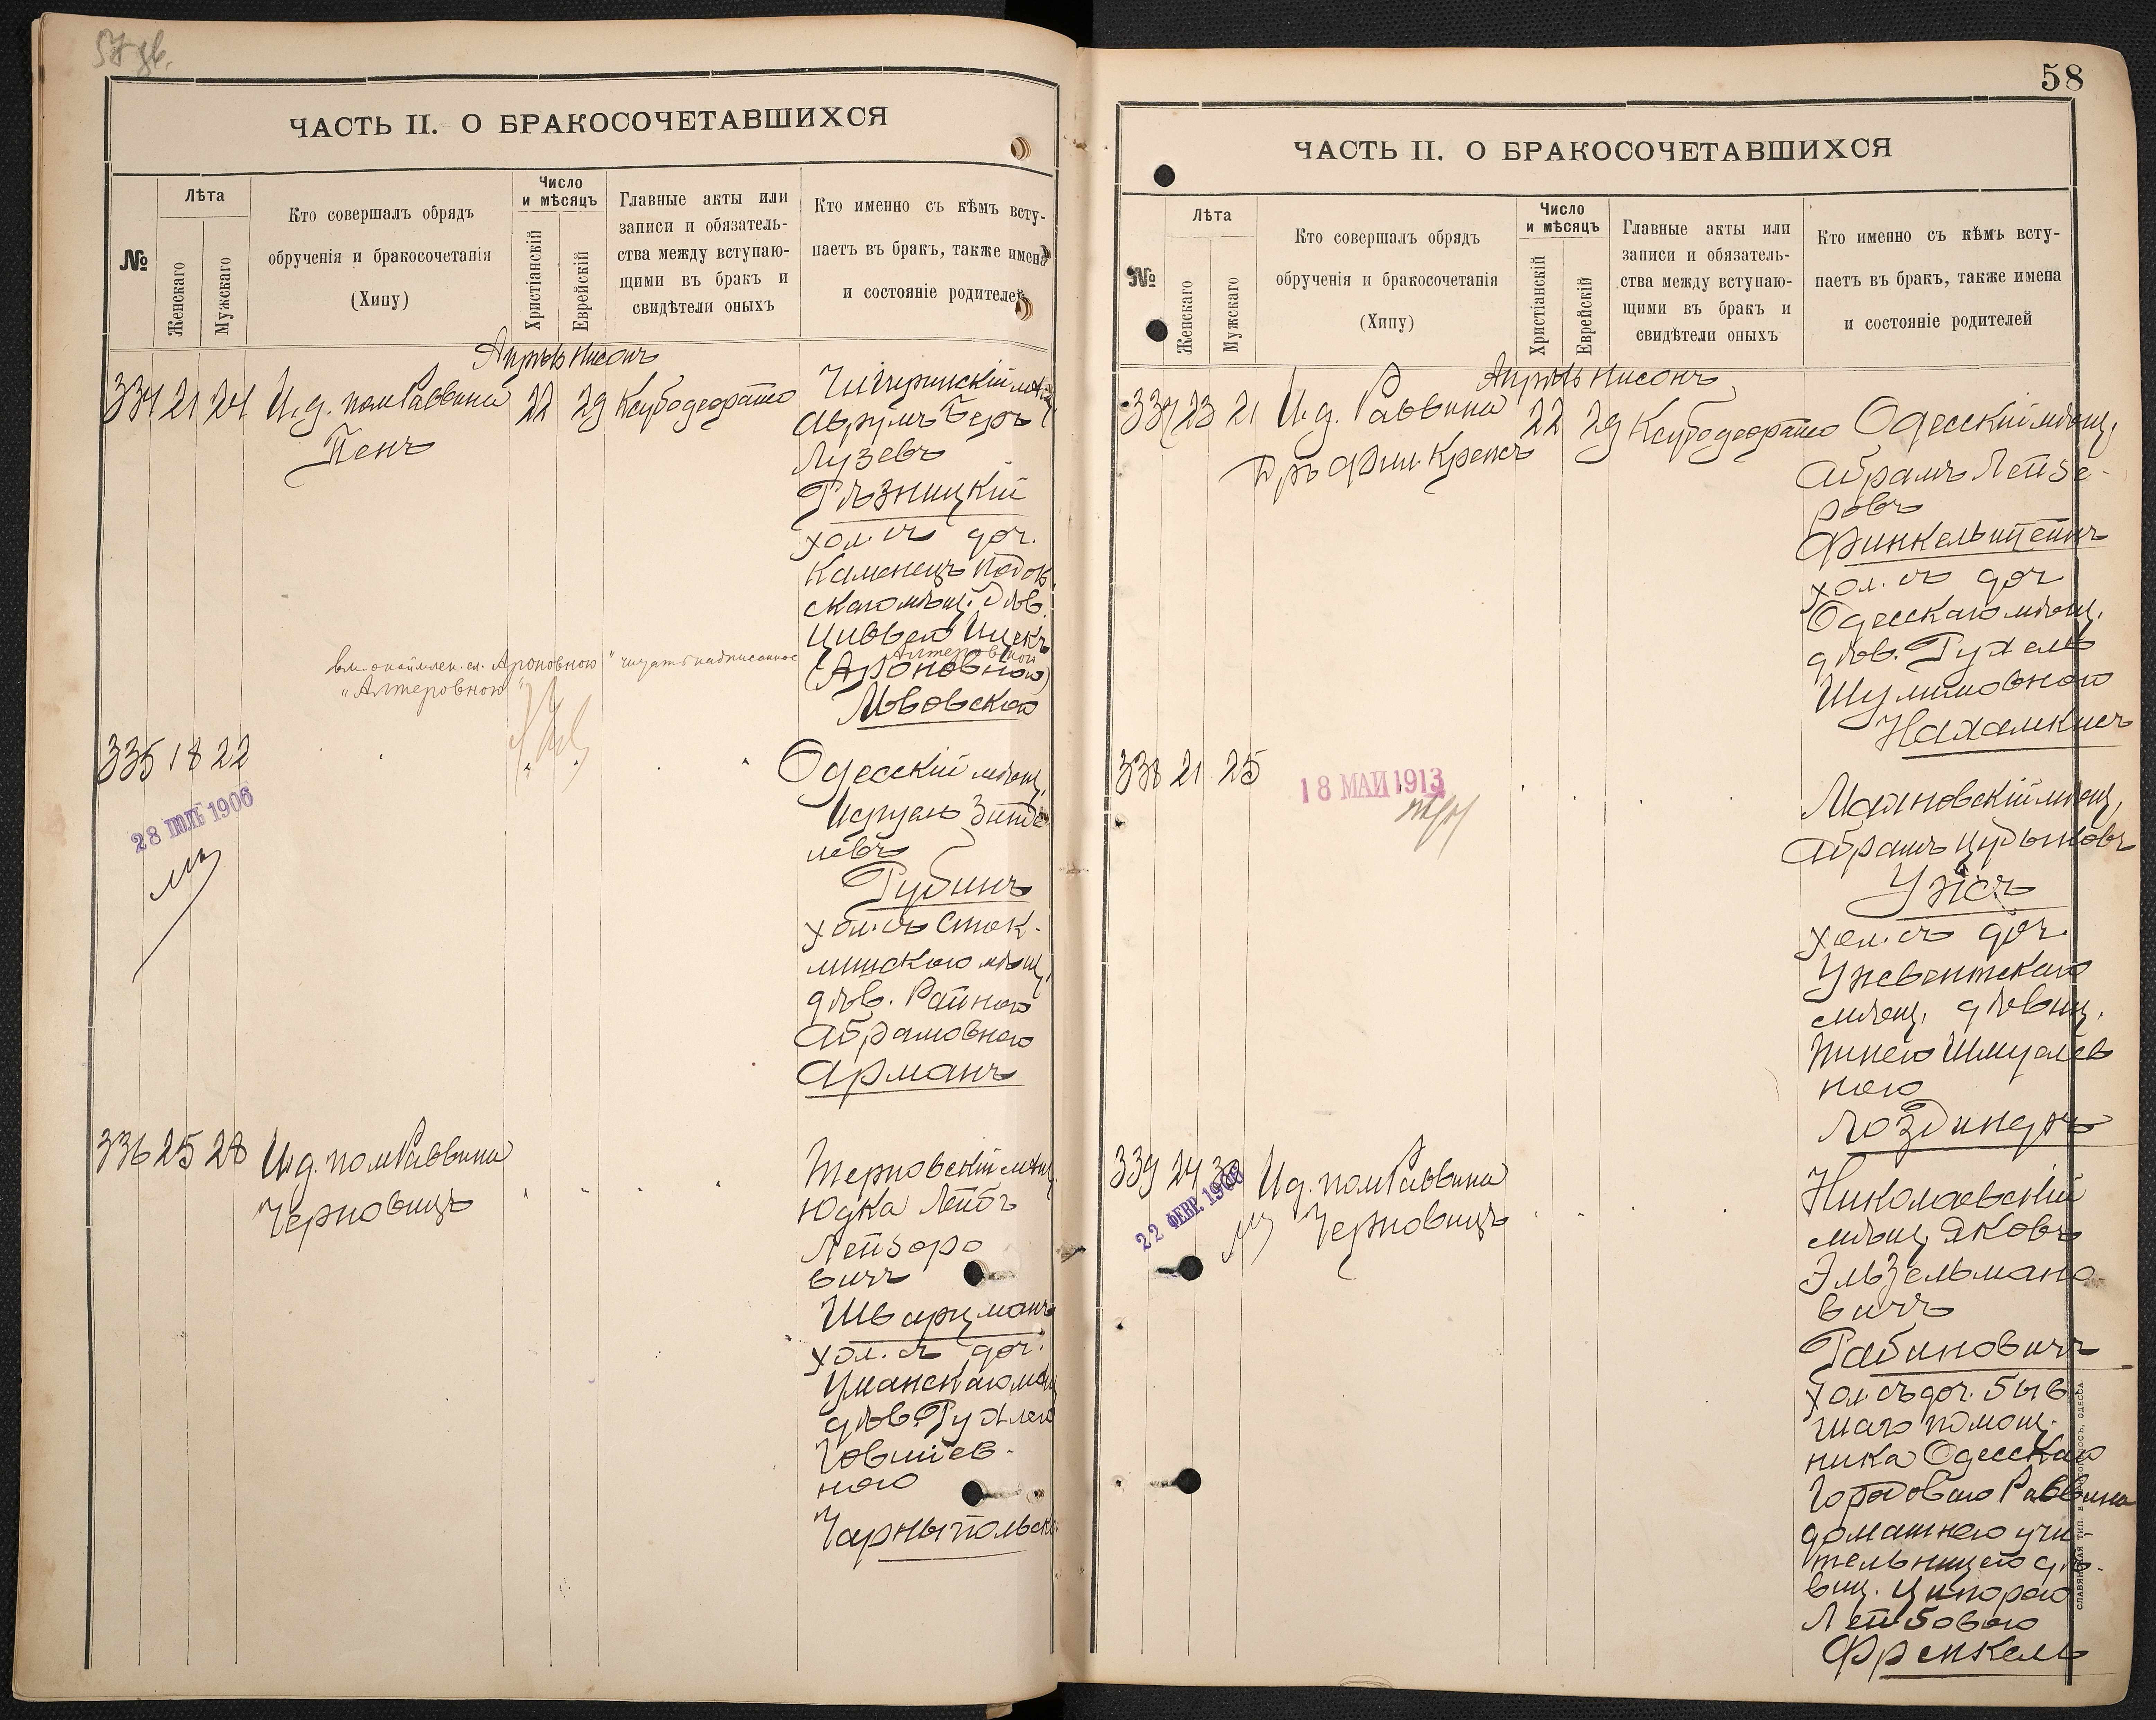 57 об.
ЧАСТЬ II. О БРАКОСОЧЕТАВШИХСЯ
№
Лѣта
Женскаго
Мужскаго
Кто совершалъ обрядъ
обрученія и бракосочетанія
(Хипу)
Число
и мѣсяцъ
Христіанскій
Еврейскій
Главные акты или
записи и обязатель-
ства между вступаю-
щими въ бракъ и
свидѣтели оныхъ
Кто именно съ кѣмъ всту-
паетъ въ бракъ, также имена
и состояніе родителей
Апрѣль Нисонъ
334 21 24 И. д. пом Раввина 22 29 Ксубодеорайто
Пенъ
Чигиринскій мѣщ.
Аврумъ Беръ
Лузевъ
Рѣзницкій
хол. съ доч.
Каменецъ Подол
скаго мѣщ. дѣв.
Цивьей Ицек
Алтеровной
(Ароновной)
Львовской
Ароновною" читать надписанное
"Алтеровною"
335 18 22
28 ІЮЛЬ 1906
Одесскій мѣщ.
Исруель Зинде
левъ
Рубинъ
хол. съ
мѣщ.
дѣв. Райною
Абрамовною
Арманъ
336 25 28 И. д. пом Раввина
Черновицъ
Терновскій мѣщ.
Юдка Лейбъ
Лейзоро
вичъ
Шварцманъ
хол. съ доч.
Уманскаго мѣщ
дѣв. Рухлею
Говшіев-
ною
Чарныпольск
58
ЧАСТЬ II. О БРАКОСОЧЕТАВШИХСЯ
№
Лѣта
Женскаго
Мужскаго
Кто совершалъ обрядъ
обрученія и бракосочетанія
(Хипу)
Число
и мѣсяцъ
Христіанскій
Еврейскій
Главные акты или
записи и обязатель-
ства между вступаю-
щими въ бракъ и
свидѣтели оныхъ
Кто именно съ кѣмъ всту-
паетъ въ бракъ, также имена
и состояніе родителей
Апрѣль Нисонъ
337 23 21 И. д. Раввина 22 29 Ксубодеорайто
Д-ръ Фил. Крепсъ
Одесскій мѣщ.
Абрамъ Лейзе-
ровъ
Финкельштейнъ
хол. съ доч
Одесскаго мѣщ.
дѣв. Рухель
Шулимовною
Нахамкисъ
338 21 25
18 МАЙ 1913
мѣщ.
Абрамъ Цудыковъ
Ужъ
хол. съ доч.
Ужвентскаго
мѣщ. дѣвиц.
Пинею Шмуелев
ною
339 24 30 И. д. пом Раввина
22 ФЕВР. 1906
Черновицъ
Николаевскій
мѣщ. Яковъ
Эльзельмано
вичъ
Рабиновичъ
хол. съ доч. быв
шаго помощ.
ника Одесскаго
Городоваго Раввина
домашнею учи-
тельницею дѣ-
виц. Ципорою
Лейбовою
Френкель
СЛАВЯНСКАЯ ТИП.
ОДЕССА